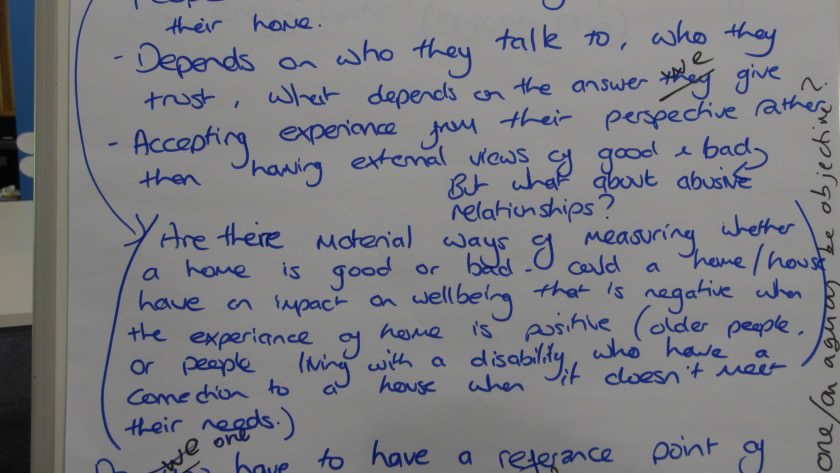 their home.
- Depends on who they talk to, who they
trust, what depends on the answer they we give
- Accepting experience from their perspective rather
then having external views of good & bad
But what about abusive
relationships?
Are there material ways of measuring whether
a home is good or bad - could a home/house
have an impact on wellbeing that is negative when
the experiance of home is positive (older people,
or people living with a disability, who have a
connection to a house when it doesn't meet
their needs.)
we one
have to have a referance point of
one/an agency be objective?